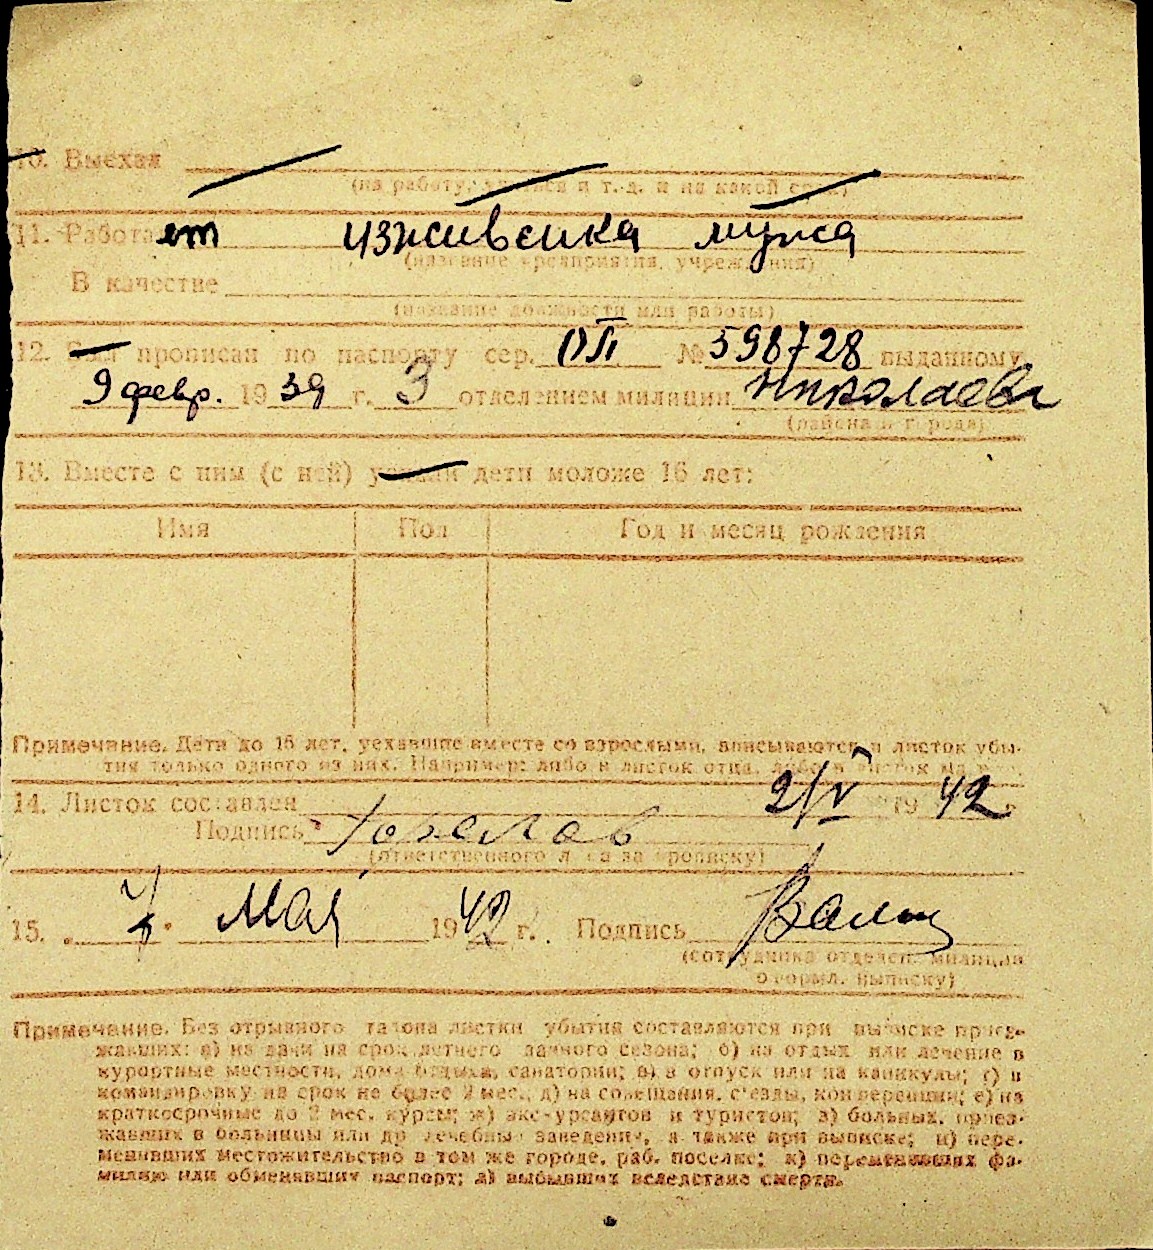 10. Выехал
(на работу, учиться и т. д. и на какой срок)
11. Работает иждивенка мужа
(название предприятия, учреждения)
В качестве
(название должности или работы)
12. Был прописан по паспорту сер. ОП № 598728 выданному
9 февр. 1939 г. 3 отделением милиции Николаева
(района и города)
13. Вместе с ним (с ней) уехали дети моложе 16 лет:
Имя Пол Год и месяц рождения
Примечание. Дети до 16 лет, уехавшие вместе со взрослыми, вписываются в листок убы-
тия только одного из них. Например: либо в листок отца, либо в листок
14. Листок составлен 2/V 1942 г.
Подпись
(ответственного лица за прописку)
15. 7 Мая 1942 г. Подпись
(сотрудника отделен. милиции
оформл. выписку)
Примечание. Без отрывного талона листки убытия составляются при выписке приез-
жавших: а) на дачи на срок летнего дачного сезона; б) на отдых или лечение в
курортные местности, дома отдыха, санатории; в) в отпуск или на каникулы; г) в
командировку на срок не более 2 мес.; д) на совещания, с'езды, конференции; е) на
краткосрочные до 2 мес. курсы; ж) экскурсантов и туристов; з) больных, приез-
жавших в больницы или др. лечебные заведения, а также при выписке; и) пере-
менивших местожительство в том же городе, раб. поселке; к) переменивших фа-
милию или обменявших паспорт; л) выбывших вследствие смерти.